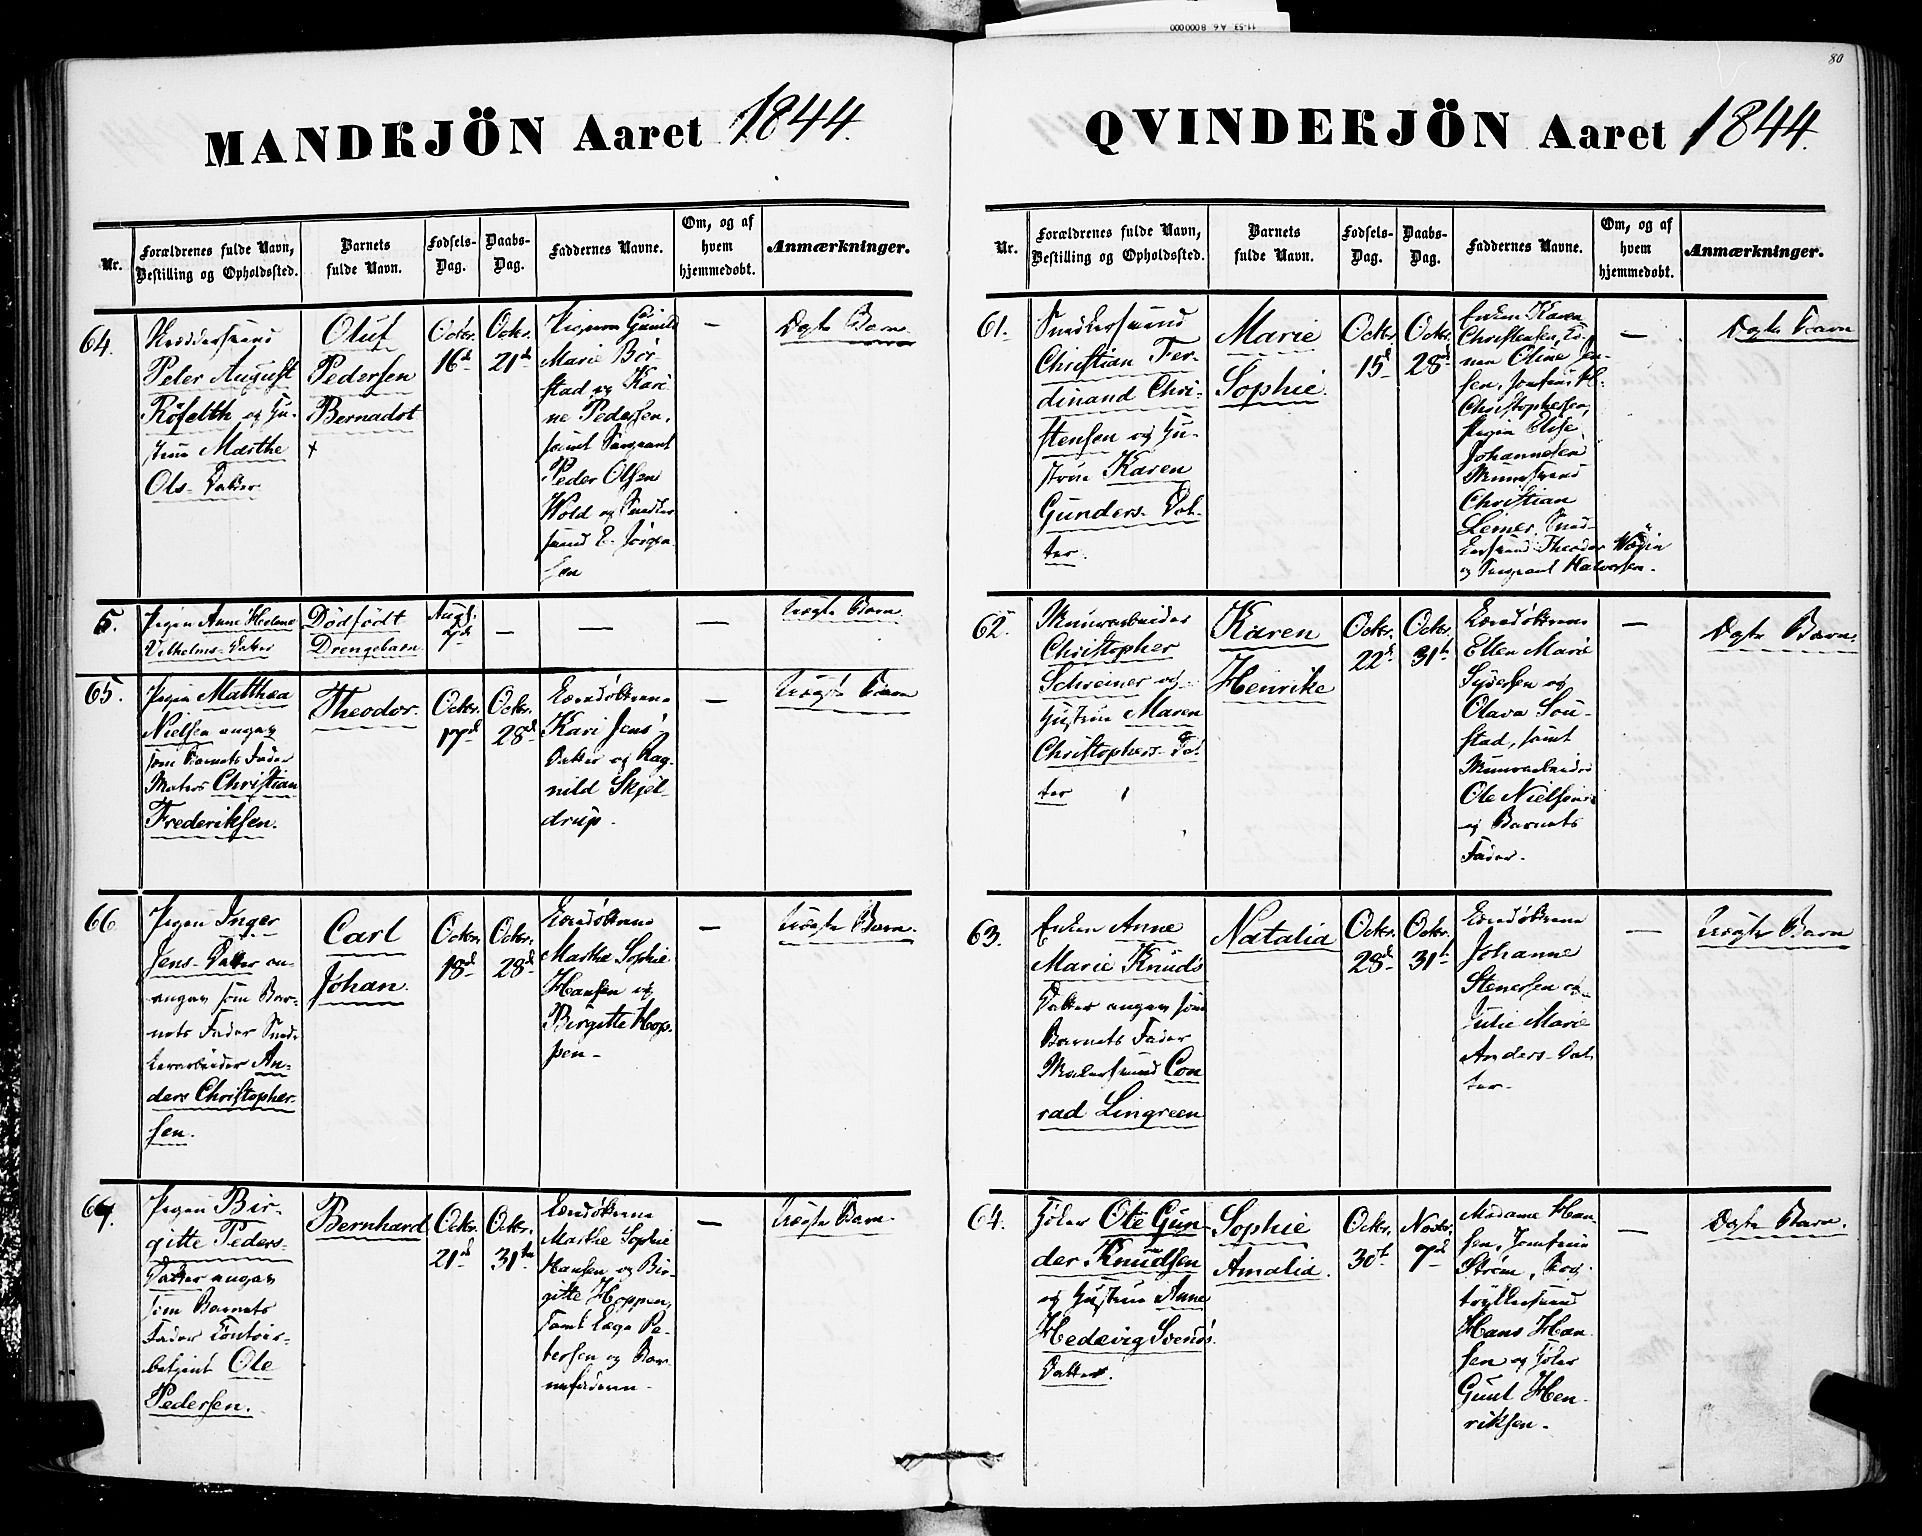 80
MANDKJÖN Aaret 1844.
Nr.
Forældrenes fulde Navn,
Bestilling og Opholdssted.
Barnets
fulde Navn.
Fødsels-
Dag.
Daabs-
Dag.
Faddernes Navne.
Om, og af
hvem
hjemmedøbt.
Anmærkninger.
64.
Peter August
Röfeldth og Hu-
struu Marthe
Ols-Datter
Oluf
Pedersen
Bernadot
+
Octbr.
16d
Octbr.
21d
Gunild
Marie Bör-
stad og Kari-
ne Pedersen,
samt Sergeant
Peder Olsen
Wold og Snedker
svend E. Jörgen-
sen
—
Ægte Barn
5.
Pigen Anne Helene
Vilhelms-Datter
Dödfödt
Drengebarn
Augs.
7d
—
—
—
Uægte Barn
65.
Pigen Matthea
Nielsen angav
som Barnets Fader
Matros Christian
Frederiksen.
Theodor.
Octbr.
17d
Octbr.
28d
Kari Jens-
Datter og Rag-
nild Skjel-
drup.
—
Uægte Barn
66
Pigen Inger
Jens-Datter an-
angav som Bar-
nets Fader Sned-
kerarbeider An-
ders Christopher-
sen.
Carl
Johan.
Octbr.
18d
Octbr.
28d
Marthe Sophie
Hansen og
Birgitte Hop-
pen-
—
Uægte Barn.
67.
Pigen Bir-
gitte Peders-
Datter angav
som Barnets
Fader Contoir-
betjent Ole
Pedersen.
Bernhard
Octbr.
21d
Octbr.
31te
Marthe Sophie
Hansen og Bir-
gitte Hoppen,
samt Aage Pe-
tersen og Bar-
nefaderen-
—
Uægte Barn.
QVINDEKJÖN Aaret 1844.
Nr.
Forældrenes fulde Navn,
Bestilling og Opholdssted.
Barnets
fulde Navn.
Fødsels-
Dag.
Daabs-
Dag.
Faddernes Navne.
Om, og af
hvem
hjemmedøbt.
Anmærkninger.
61.
Snedkersvend
Christian Fer-
dinand Chri-
stensen og Hu-
struu Karen
Gunders-Dat-
ter.
Marie
Sophie.
Octbr.
15d
Octbr.
28d
Enken Karen
Christensen, Ko-
nen Oline Jen-
sen, Jomfru H.
Christophersen,
Pigen Else
Johannesen
Muursvend
Christian
Lemer, Sned-
kersvend Theodor Wægin
og Sergeant Halvorsen.
—
Ægte Barn
62.
Muurarbeider
Christopher
Schreiner og
Hustrue Maren
Christophers-Dat-
ter
Karen
Henrike
Octbr.
22d
Octbr.
31t
Ellen Marie
Syversen og
Olava Sou-
stad, samt
Muurarbeider
Ole Nielsen
og Barnets
Fader.
—
Ægte Barn.
63.
Enken Anne
Marie Knuds
Datter angav som
Barnets Fader
Malersvend Con
rad Lingreen
Natalia
Octbr.
28d
Octbr.
31t
Johanne
Stenersen og
Julie Marie
Anders-Dat
ter.
—
Uægte Barn
64.
Ole Gun
der Knudsen
og Hustrue Anne
Hedevig Svends-
Datter.
Sophie
Amalia.
Octbr.
30t
Novbr.
7d
Madame Han-
sen, Jomfrue
Ström,
Hans Han-
sen og
Gunl Hen-
riksen.
—
Ægte Barn.